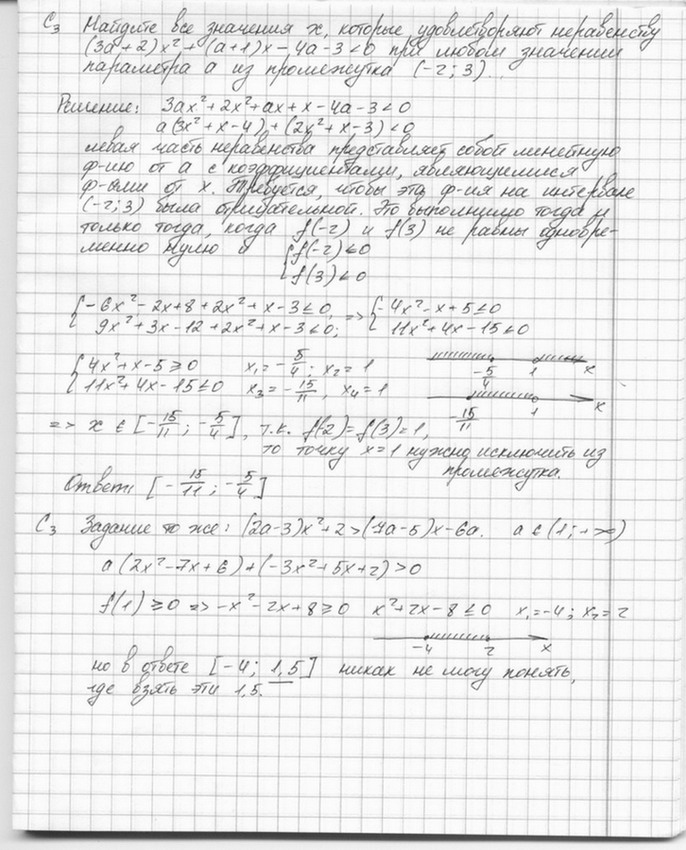 С₃ Найдите все значения х, которые удовлетворяют неравенству
(3а+2)х² + (а+1)х - 4а - 3 < 0 при любом значении
параметра а из промежутка (-2; 3)..
Решение: 3ах² + 2х² + ах + х - 4а - 3 < 0
а(3х² + х - 4) + (2х² + х - 3) < 0
левая часть неравенства представляет собой линейную
ф-ию от а с коэффициентами, являющимися
ф-ями от х. Требуется, чтобы эта ф-ия на интервале
(-2; 3) была отрицательной. Это выполнимо тогда и
только тогда, когда f(-2) и f(3) не равны одновре-
менно нулю и { f(-2) ≤ 0
f(3) ≤ 0
{ -6х² - 2х + 8 + 2х² + х - 3 ≤ 0, => { -4х² - х + 5 ≤ 0
9х² + 3х - 12 + 2х² + х - 3 ≤ 0; 11х² + 4х - 15 ≤ 0
{ 4х² + х - 5 ≥ 0 х₁ = -5/4; х₂ = 1 -5/4 1 х
11х² + 4х - 15 ≤ 0 х₃ = -15/11, х₄ = 1 -15/11 1 х
=> х ∈ [-15/11; -5/4], т.к. f(2) = f(3) = 1,
то точку х=1 нужно исключить из
промежутка.
Ответ: [-15/11; -5/4]
С₃ Задание то же: (2а-3)х² + 2 > (7а-5)х - 6а. а ∈ (1; +∞)
а(2х² - 7х + 6) + (-3х² + 5х + 2) > 0
f(1) ≥ 0 => -х² - 2х + 8 ≥ 0 х² + 2х - 8 ≤ 0 х₁ = -4; х₂ = 2
-4 2 х
но в ответе [-4; 1,5] никак не могу понять,
где взять эти 1,5.